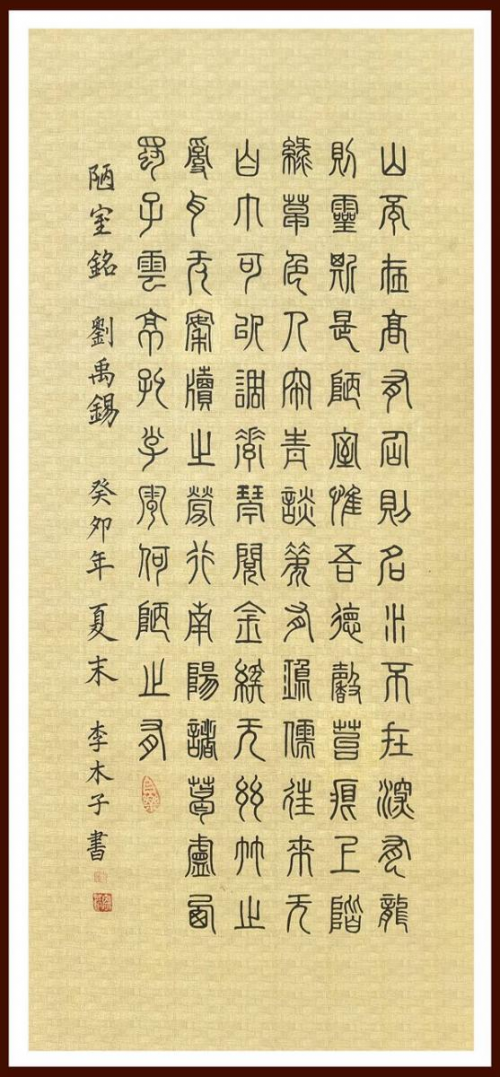 山不在高有仙則名水不在深有龍
則靈斯是陋室惟吾德馨苔痕上階
綠草色入簾青談笑有鴻儒往來无
白丁可以調素琴閱金經无絲竹之
亂耳无案牘之勞形南陽諸葛廬西
蜀子雲亭孔子云何陋之有
陋室銘 劉禹錫 癸卯年 夏末 李木子書